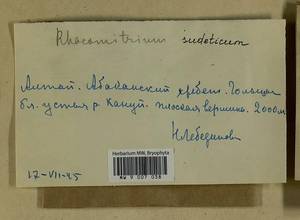 Rhacomitrium sudeticum
Алтай. Абаканский хребет. Гольцы
бл. устья р. Каир. плоская вершина. 2000м
Н Лебединова
Herbarium MW, Bryophyta
MW 9 007 038
17-VII-45